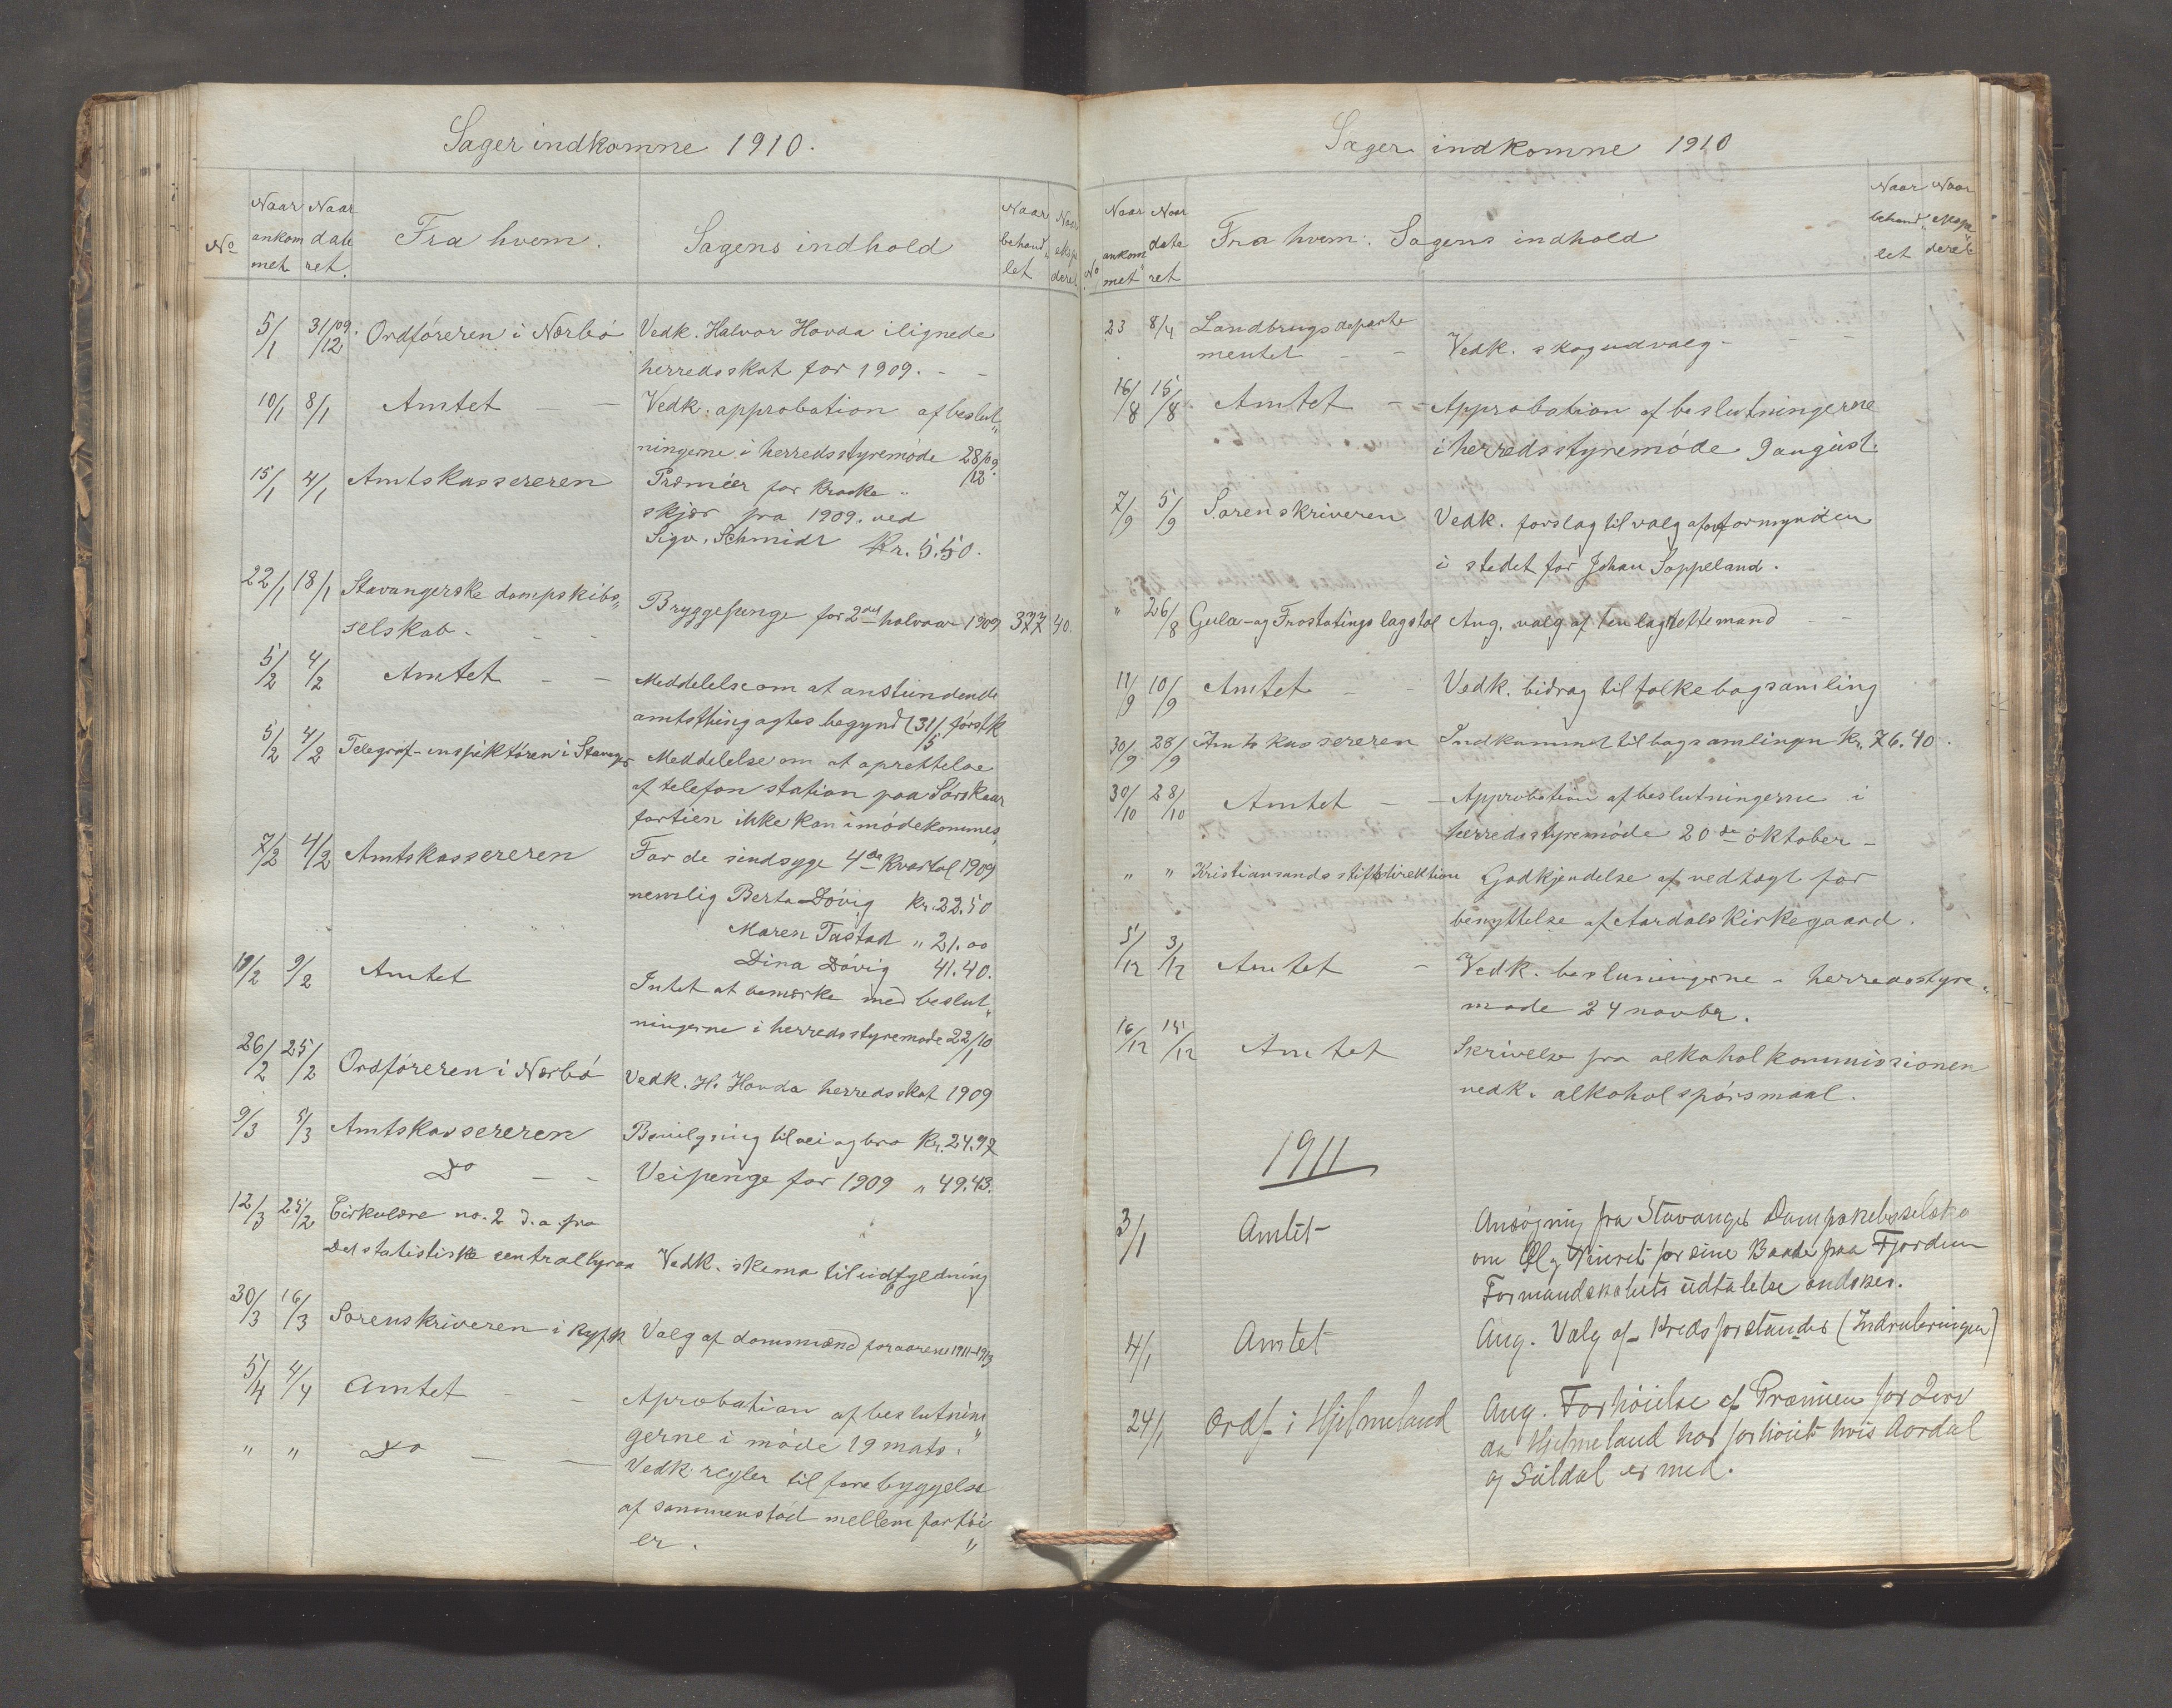 Sager indkomne 1910.
No
Naar ankom met
Naar date ret.
Fra hvem.
Sagens indhold
Naar behand„ let
Naar ekspe deret
5/1 31/12 09. Ordføreren i Nærbø Vedk. Halvor Hovda ilignede
herredsskat for 1909. - -
10/1 8/1 Amtet — — Vedk. approbation af beslut„
ningerne i herredsstyremøde 28/12 09.
15/1 4/1 Amtskassereren Præmier for Krake„
skjær fra 1909. ved
Sigv. Schmidt Kr. 5.50.
22/1 18/1 Stavangerske dampskibs„
selskab. - - Bryggepenge for 2det halvaar 1909 377 40.
5/2 4/2 Amtet — — Meddelelse om at anstundende
amtsthing agtes begynd (31/5 førstk
5/2 4/2 Telegraf-inspektøren i Stavanger Meddelelse om at oprettelse
af telefon station paa Sørskaar
fortien ikke kan imødekommes,
7/2 4/2 Amtskassereren For de sindsyge 4de Kvartal 1909
nemlig Berta Døvig Kr. 22.50
Maren Tastad „ 21.00
Dina Døvig 41.40.
10/2 9/2 Amtet Intet at bemærke med beslut„
ningerne i herredsstyremøde 22/1 10
26/2 25/2 Ordføreren i Nærbø Vedk. H. Hovda herredsskat 1909
9/3 5/3 Amtskassereren Bevilgning til vei og bro Kr. 24.97
Do — - Veipenge for 1909 „ 49.43.
12/3 25/2 Cirkulære no. 2 d.a fra
Det statistiske centralbyraa Vedk. skema til udfyldning
30/3 16/3 Sorenskriveren i Ryfk Valg af domsmænd for aarene 1911-1913
5/4 4/4 Amtet - - Aprobation af beslutnin„
gerne i møde 19 mats.
„ „ Do — — Vedk. regler til forebyggelse
af sammenstød mellem fartøi„
er.
Sager indkomne 1910
No
Naar ankom met
Naar date ret
Fra hvem.
Sagens indhold
Naar behand„ let
Naar ekspe„ deret
23 8/4 Landbrugsdeparte
mentet — — Vedk. skogudvalg - - -
16/8 15/8 Amtet - - Approbation af beslutningerne
i herredsstyremøde 9 august.
7/9 5/9 Sorenskriveren Vedk. forslag til valg af formynder
i stedet for Johan Soppeland.
„ 26/8 Gula- og Frostatings lagstol Ang. valg af en lagrettemand - -
11/9 10/9 Amtet - - Vedk. bidrag til folkebogsamling
30/9 28/9 Amtskassereren Indkommet til bogsamlingen Kr. 76.40.
30/10 28/10 Amtet - - Approbation af beslutningerne i
herredsstyremøde 20de oktober -
„ „ Kristiansands stiftsdirektion Godkjendelse af vedtægt for
benyttelse af Aardals Kirkegaard.
5/12 3/12 Amtet - Vedk. besluningerne i herredsstyre„
møde 24 novbr.
16/12 15/12 Amtet Skrivelse fra alkoholkommissionen
vedk. alkoholspørsmaal.
1911
3/1 Amtet Ansøgning fra Stavanger Dampskibsselska
om Øl og Vinret for sine Baade paa Fjorden
Formandskabets udtalelse ønskes.
4/1 Amtet Ang. Valg af Kredsforstander (Indrulleringen)
24/1 Ordf. i Hjelmeland Ang. Forhøielse af Præmien for
da Hjelmeland har forhøiet hvis Aardal
og Suldal er med.